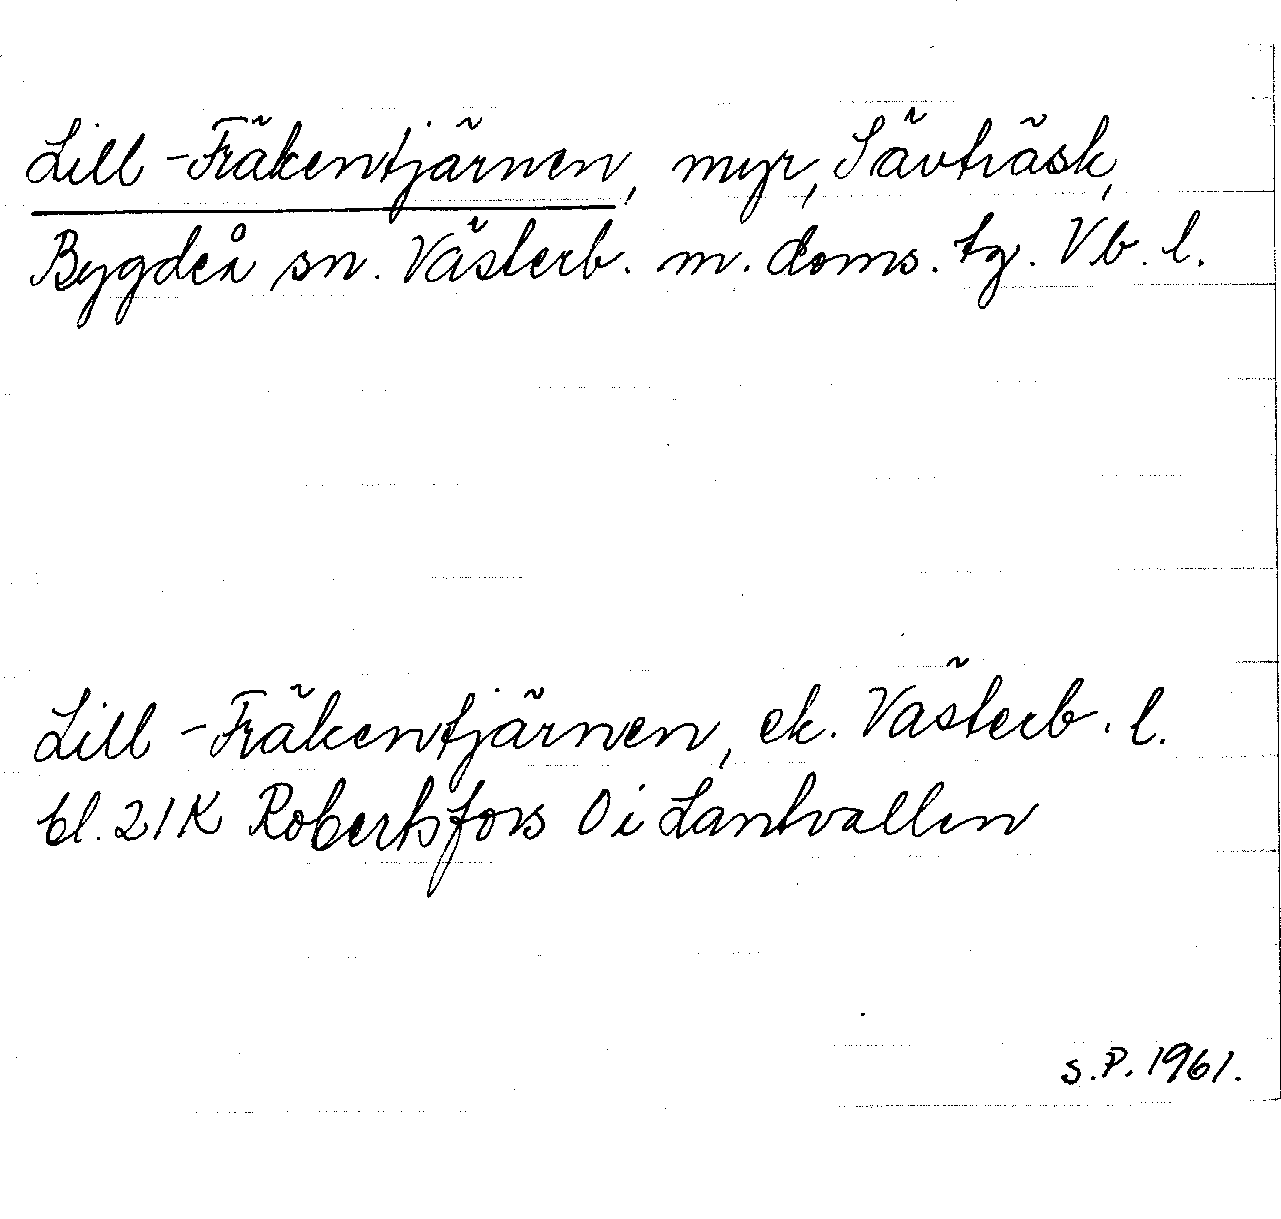 Lill-Fräkentjärnen, myr, Sävträsk,
Bygdeå sn. Västerb. m. doms. tg. Vb. l.
Lill-Fräkentjärnen, ek. Västerb. l.
bl. 21K Robertsfors O i Lantvallen
S.P. 1961.